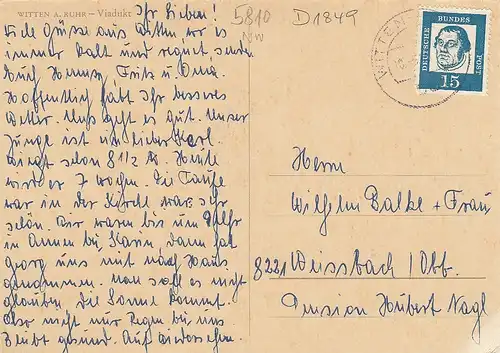 WITTEN A. RUHR – Viadukt
5810
NW
D1849
Ihr Lieben!
Viele Grüsse aus Witten wo es
immer kalt und regnet senden
Euch Henny, Fritz u. Oma.
Hoffentlich habt Ihr besseres
Wetter. Uns geht es gut. Unser
Junge ist ein lieber Kerl.
Wiegt schon 8 1/2 Heute
wird er 7 Wochen. Die Taufe
war in der Kirche war sehr
schön. Wir waren bis um
in Annen bei dann hat
Georg uns mit nach Haus
genommen. Man soll es nicht
glauben die Sonne kommt.
Also nicht nur Regen bei uns
Bleibt gesund. Auf Wiedersehen.
WITTEN
DEUTSCHE BUNDESPOST
15
Herrn
Wilhelm Balke + Frau
8221 Weissbach / Obb.
Pension Hubert Nagl